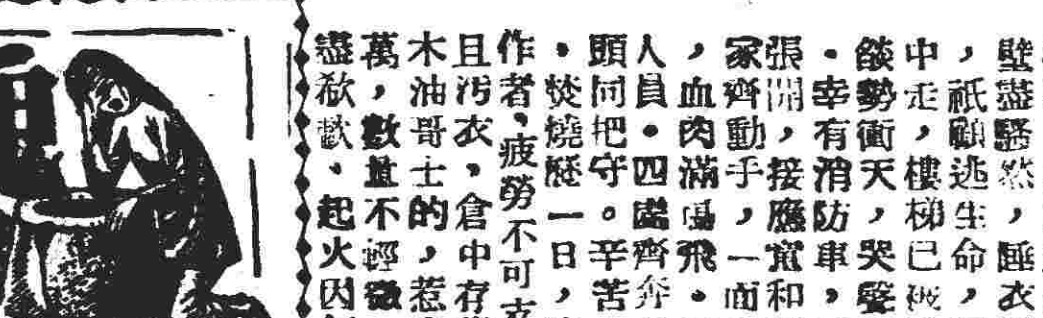 壁盡騷然，睡衣
，祇顧逃生命，
中走，樓梯已被
燄勢衝天，哭聲
。幸有消防車，
張開，接應電和
家齊動手，一面
，血肉滿場飛。
人員。四處齊奔
頭同把守。辛苦
。焚燒歷一日，
作者，疲勞不可支
且污衣，倉中存
木油哥士的，惹
萬，數量不輕微
盡欷歔、起火因